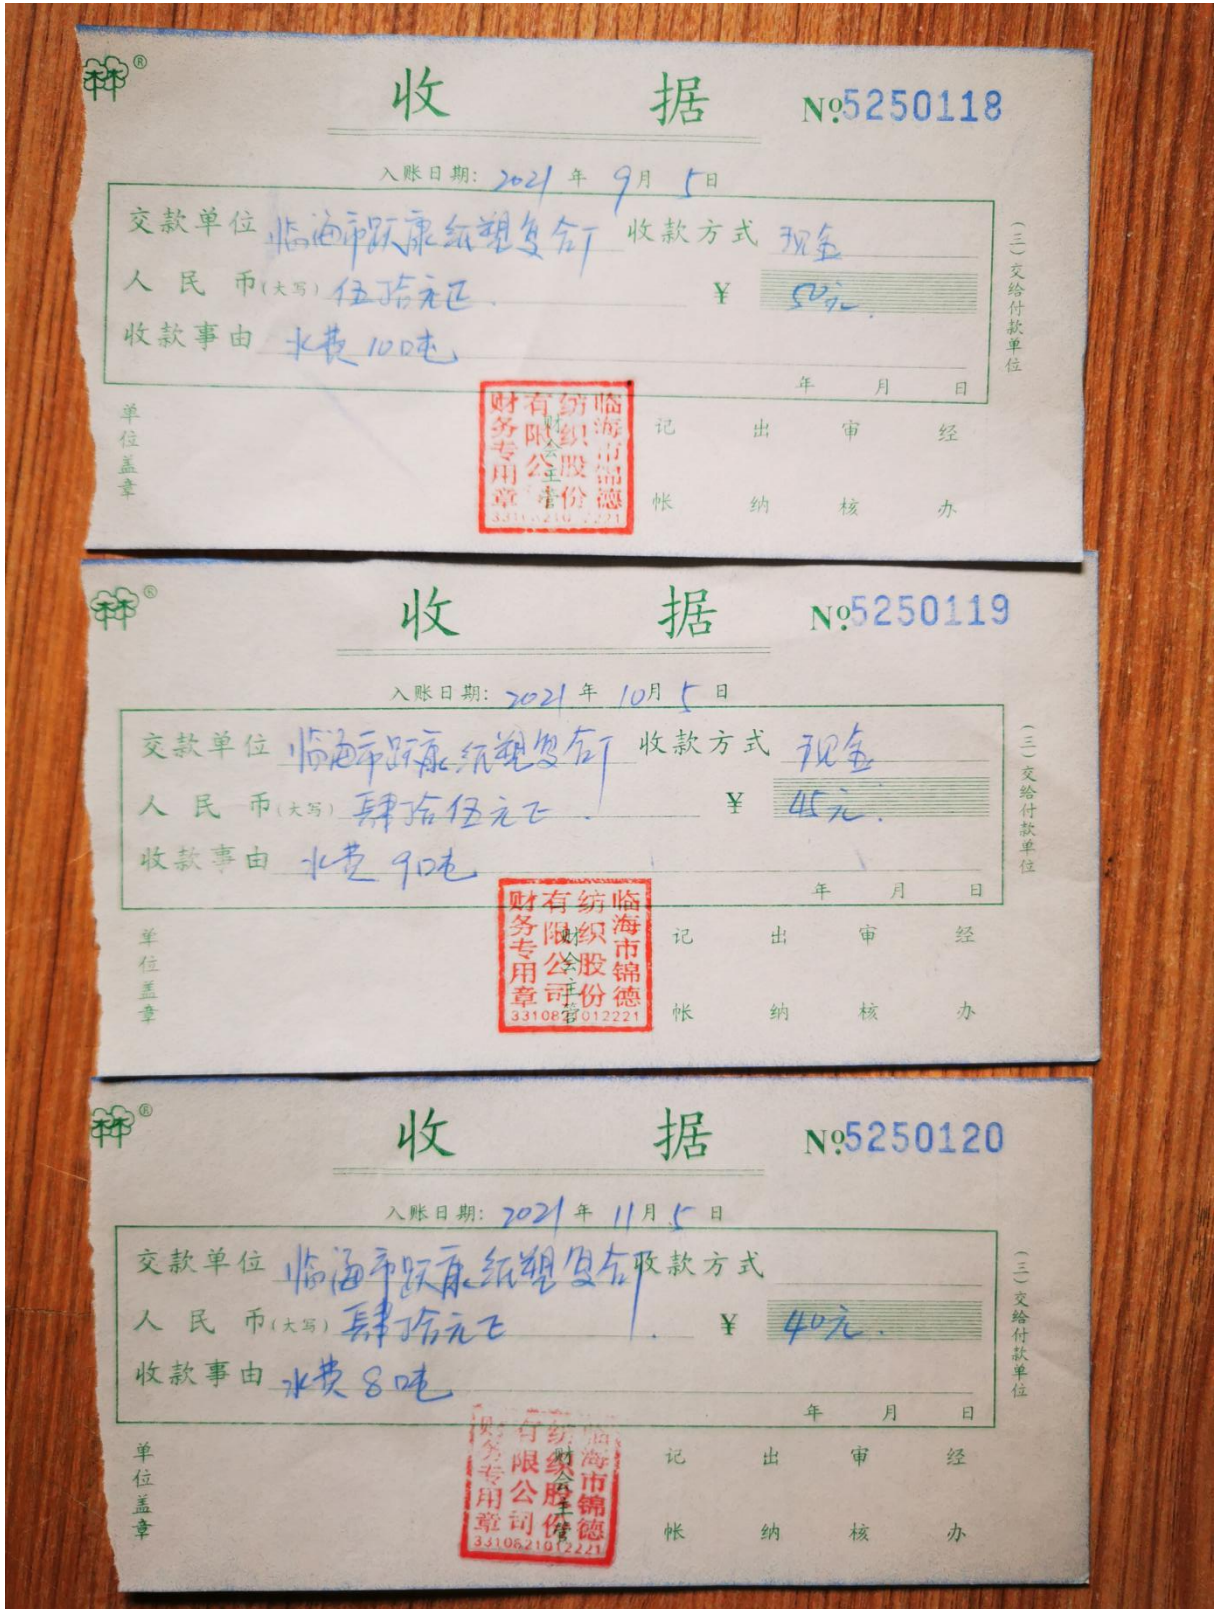 林 ®
收 据 № 5250118
入账日期: 2021 年 9 月 5 日
交款单位 临海市跃康纸塑复合厂 收款方式 现金
人民币(大写) 伍拾元正. ¥ 50元.
收款事由 水费10吨
年 月 日
(三)交给付款单位
单位盖章 财会主管 记帐 出纳 审核 经办
临海市锦德
纺织股份
有限公司
财务专用章
林 ®
收 据 № 5250119
入账日期: 2021 年 10 月 5 日
交款单位 临海市跃康纸塑复合厂 收款方式 现金
人民币(大写) 肆拾伍元正. ¥ 45元.
收款事由 水费9吨
年 月 日
(三)交给付款单位
单位盖章 财会主管 记帐 出纳 审核 经办
临海市锦德
纺织股份
有限公司
财务专用章
3310821012221
林 ®
收 据 № 5250120
入账日期: 2021 年 11 月 5 日
交款单位 临海市跃康纸塑复合厂 收款方式
人民币(大写) 肆拾元正. ¥ 40元.
收款事由 水费8吨
年 月 日
(三)交给付款单位
单位盖章 财会主管 记帐 出纳 审核 经办
临海市锦德
纺织股份
有限公司
财务专用章
3310821012221